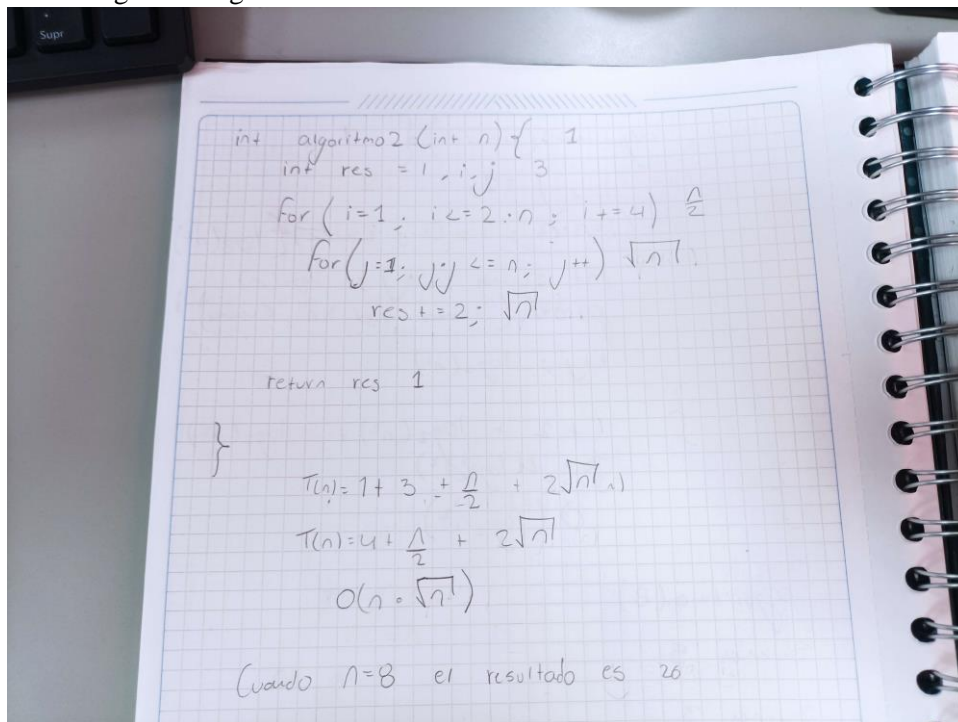 Supr
int algoritmo2 (int n) { 1
int res = 1, i, j 3
for ( i=1; i <= 2·n ; i+=4) n/2
for (j=1; j·j <= n; j++) √n
res += 2; √n
return res 1
}
T(n)= 1 + 3 + n/2 + 2√n
T(n)= 4 + n/2 + 2√n
O(n · √n)
Cuando n=8 el resultado es 26